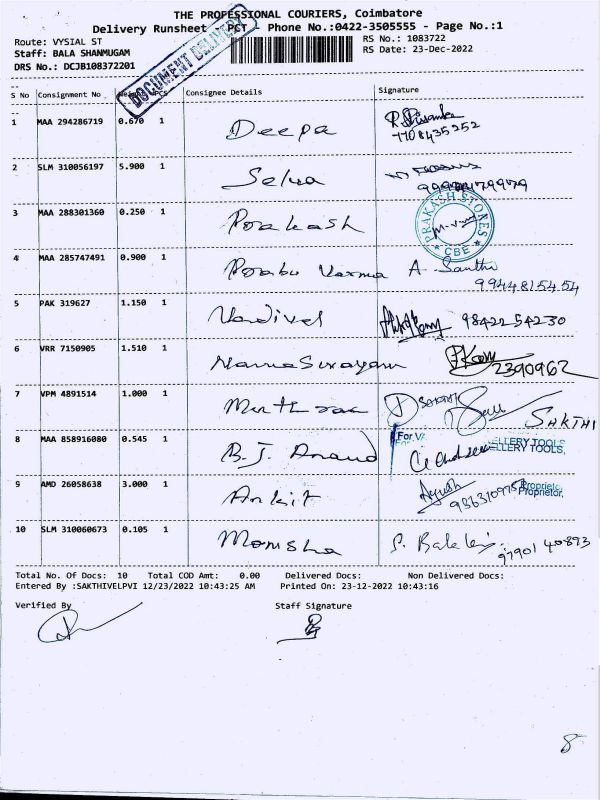 THE PROFESSIONAL COURIERS, Coimbatore
Delivery Runsheet - PCT - Phone No.:0422-3505555 - Page No.:1
Route: VYSIAL ST
RS No.: 1083722
Staff: BALA SHANMUGAM
RS Date: 23-Dec-2022
DRS No.: DCJB108372201
DOCUMENT DELIVERY
S No Consignment No Weight PCS Consignee Details Signature
1 MAA 294286719 0.670 1 Deepa
7708435252
2 SLM 310056197 5.900 1 Selva
3 MAA 288301360 0.250 1 Prakash PRAKASH STORES CBE
4 MAA 285747491 0.900 1 Prabu Varma A. Santhi
9944815454
5 PAK 319627 1.150 1 Vadivel 98422 54230
6 VRR 7150905 1.510 1 2390962
7 VPM 4891514 1.000 1 SAKTHI
8 MAA 858916080 0.545 1 B.J. Anand For
ELLERY TOOLS
ELLERY TOOLS,
9 AMD 26058638 3.000 1 Ankit Ayush
Proprietor,
10 SLM 310060673 0.105 1 Monisha
97901 40893
Total No. Of Docs: 10 Total COD Amt: 0.00 Delivered Docs: Non Delivered Docs:
Entered By :SAKTHIVELPVI 12/23/2022 10:43:25 AM Printed On: 23-12-2022 10:43:16
Verified By Staff Signature
8